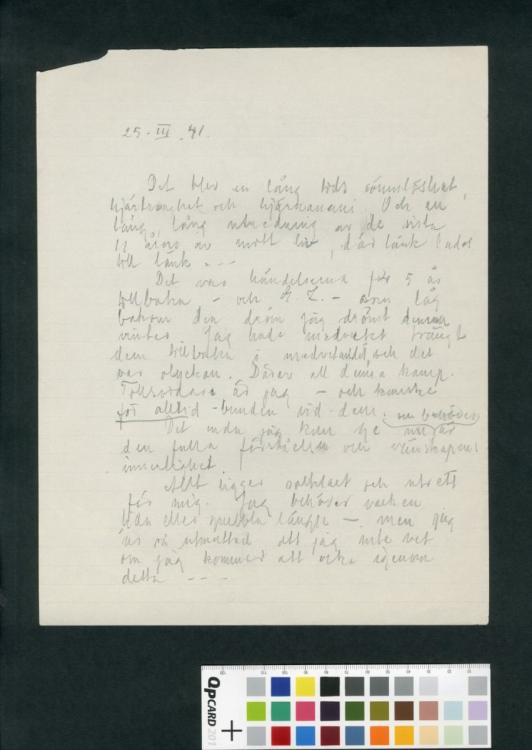 25-III.41.
Det blev en lång tids sömnlöshet,
hjärtsvaghet och Och en
lång, lång utredning av de sista
12 åren av mitt liv, där länk lades
till länk - - -
Det var händelserna för 5 år
tillbaka - och - som låg
bakom den dröm jag drömt denna
vinter. Jag hade medvetet trängt
dem tillbaka i medvetandet, och det
var olyckan. Därav all denna kamp.
Tillsvidare är jag - och kanske
för alltid - bunden vid dem.
Det enda jag kan ge nu är
den fulla förståelsen och vänskapens
innerlighet.
Allt ligger solklart och utrett
för mig. Jag behöver varken
eller längre - men jag
är så utmattad att jag inte vet
om jag kommer att orka igenom
detta - - -
QPCARD 201